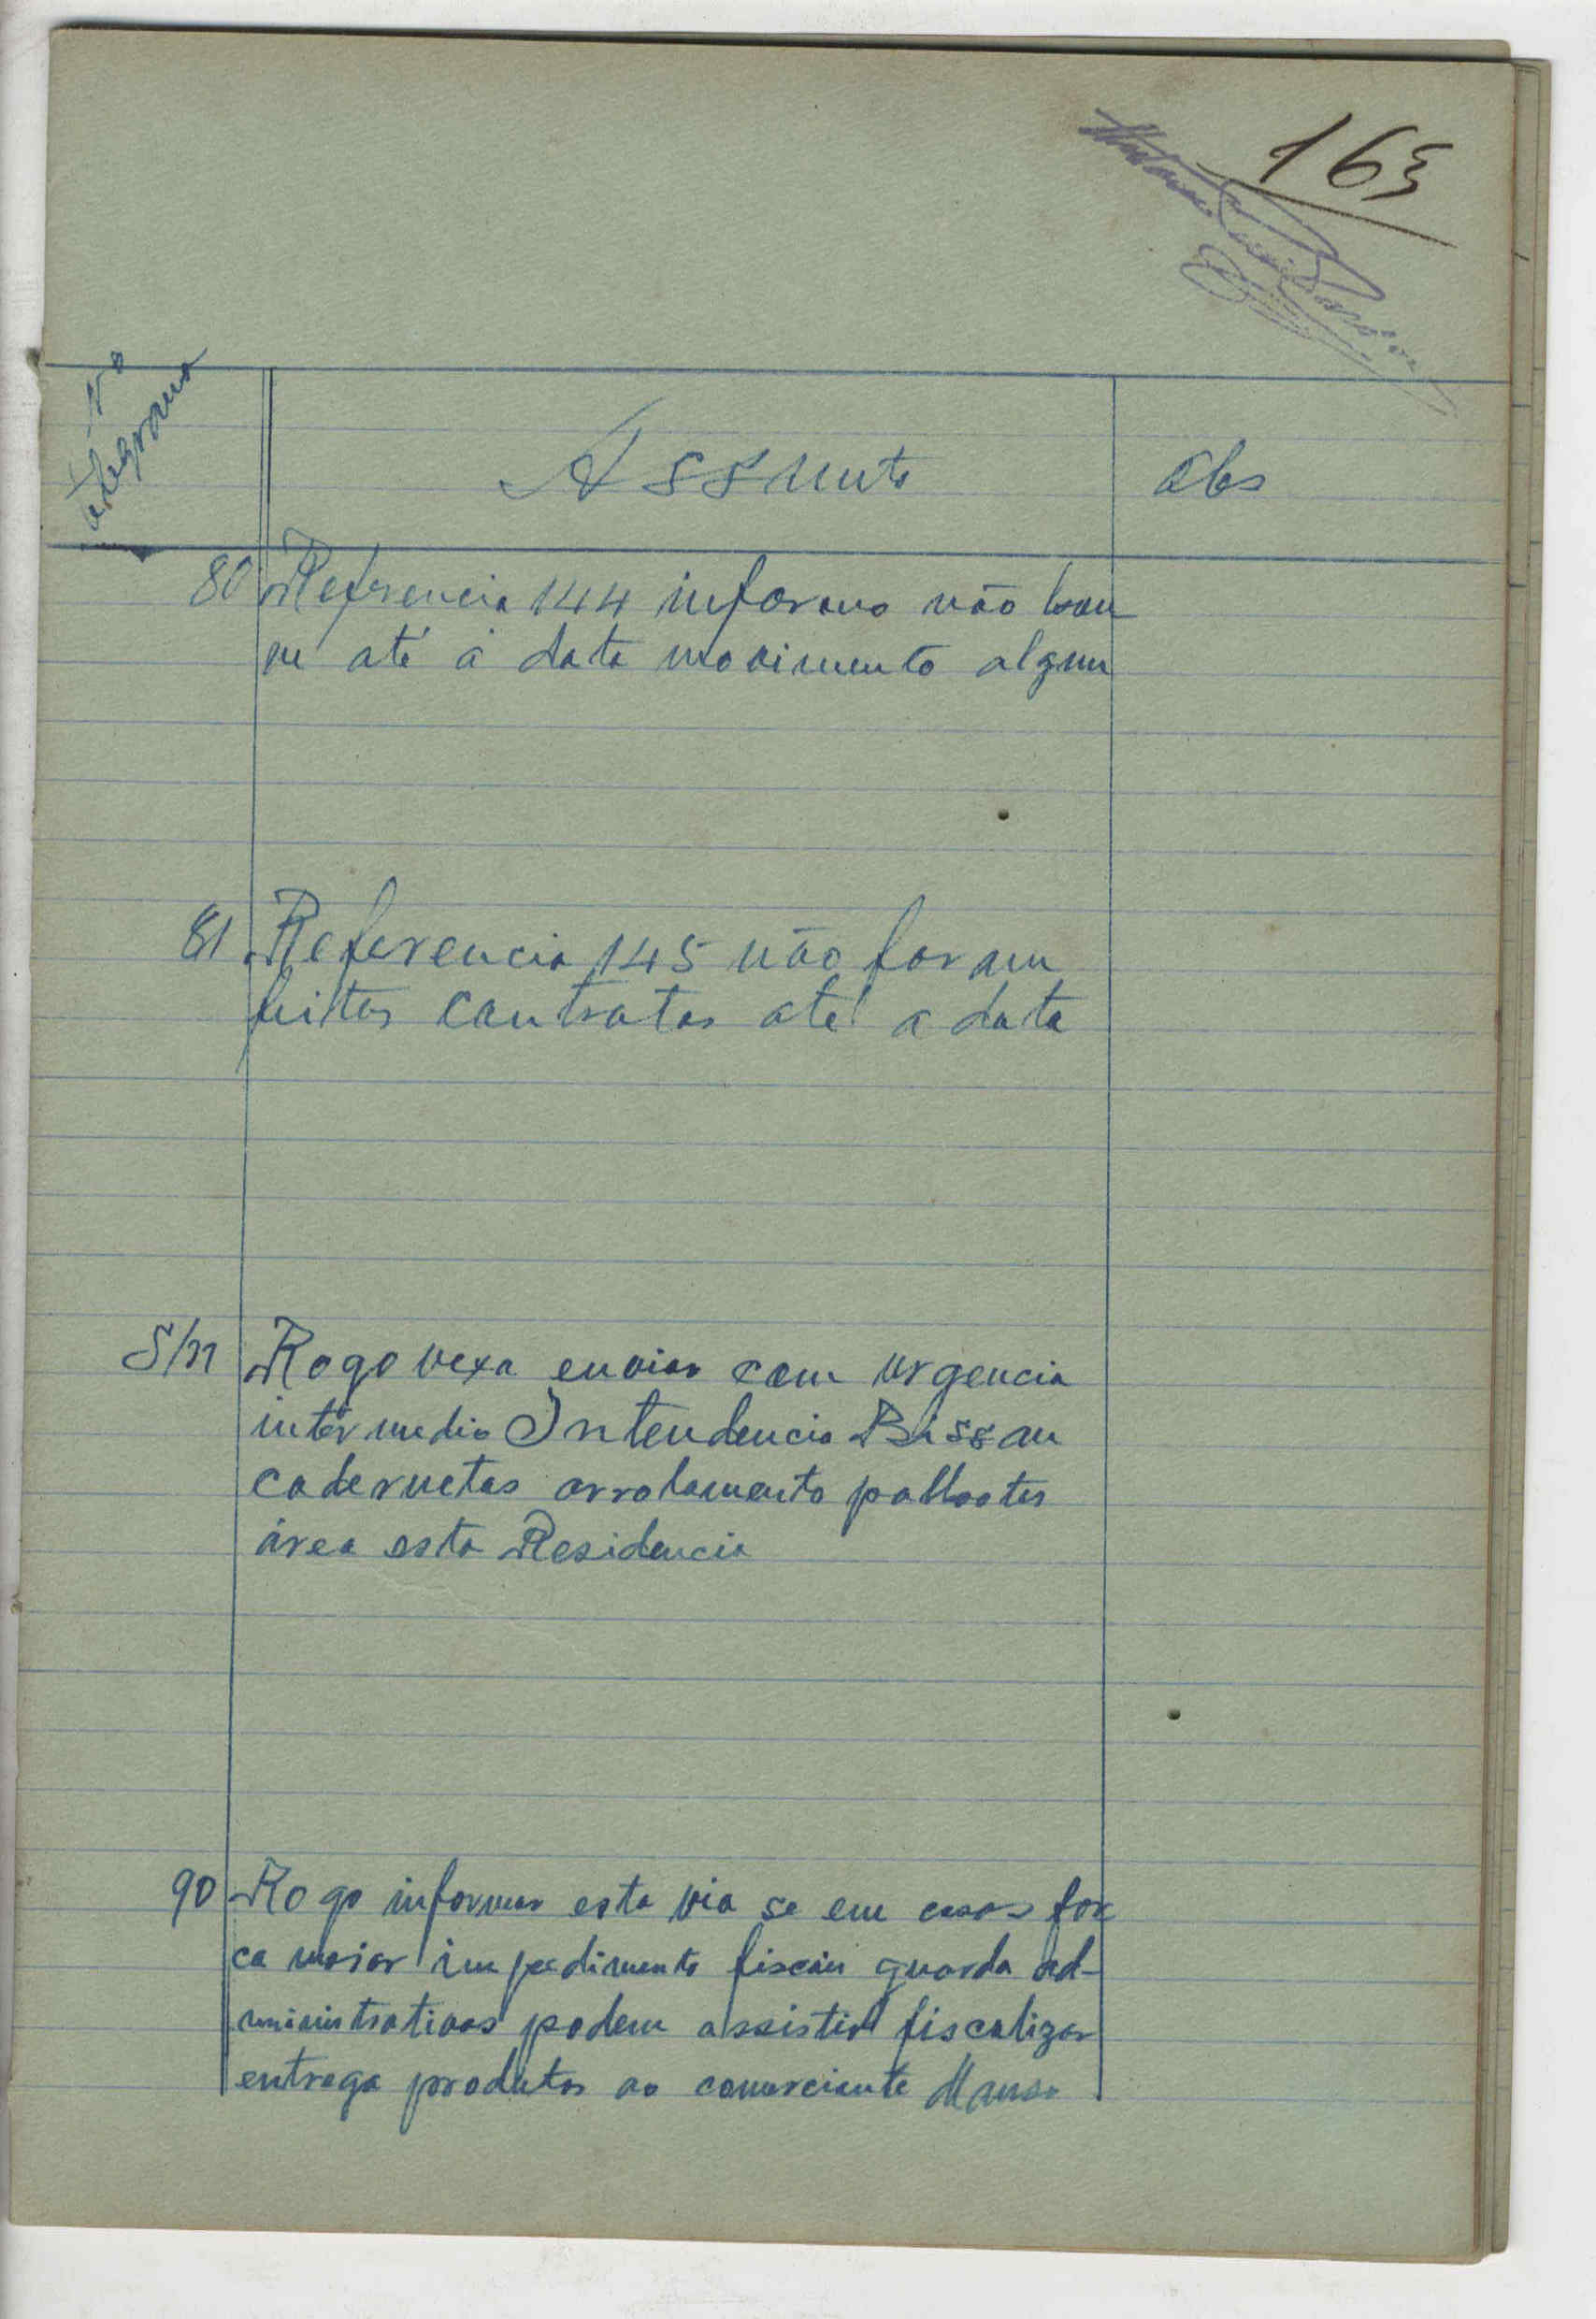 163
Nº
telegrama
Assunto
Obs
80 Referencia 144 informo não hou
ve até á data movimento algum
81 Referencia 145 não foram
feitos contratos até a data
S/n Rogo vexa enviar com urgencia
intermedio Intendencia Bissau
cadernetas arrolamento palhotas
área esta Residencia
90 Rogo informar esta via se em casos for
ca maior impedimento fiscais guarda ad-
ministrativos podem assistir fiscalizar
entrega produtos ao comerciante